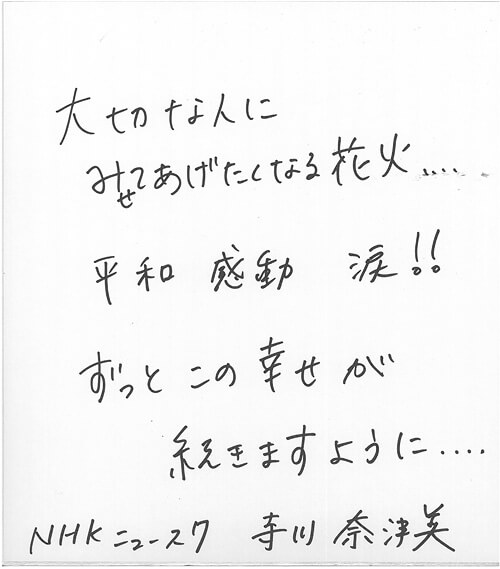 大切な人に
みせてあげたくなる花火....
平和 感動 涙!!
ずっとこの幸せが
続きますように....
NHKニュース7 寺川奈津美